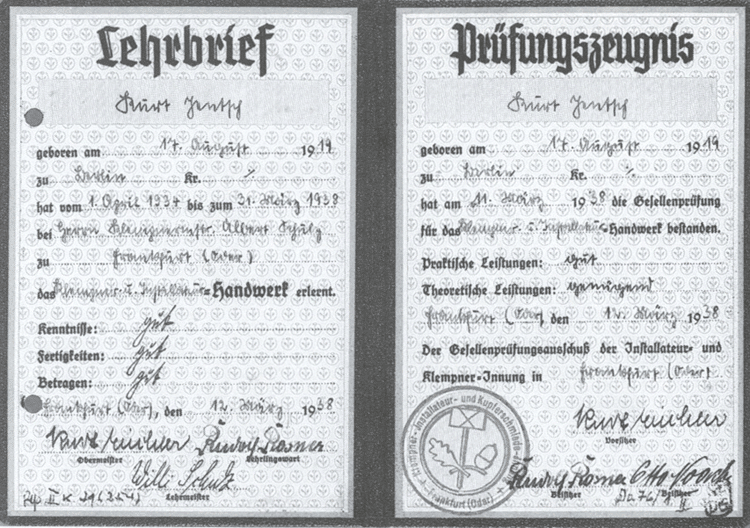 Lehrbrief
Kurt Jentsch
geboren am 17. August 1919
zu Berlin Kr. ⁒
hat vom 1. April 1934 bis zum 31. März 1938
bei Herrn Klempnermstr. Albert Schulz
zu Frankfurt (Oder)
das Klempner- u. Installateur-Handwerk erlernt.
Kenntnisse: gut
Fertigkeiten: gut
Betragen: gut
Frankfurt (Oder), den 12. März 1938
Obermeister
Rudolf
Lehrlingswart
Willi Schulz
Lehrmeister
Prüfungszeugnis
Kurt Jentsch
geboren am 17. August 1919
zu Berlin Kr. ⁒
hat am 11. März 1938 die Gesellenprüfung
für das Klempner- u. Installateur-Handwerk bestanden.
Praktische Leistungen: gut
Theoretische Leistungen: genügend
Frankfurt (Oder) den 12. März 1938
Der Gesellenprüfungsausschuß der Installateur- und
Klempner-Innung in Frankfurt (Oder)
Klempner-, Installateur- und Kupferschmiede-
Frankfurt (Oder)
Vorsitzer
Rudolf Otto
Beisitzer Beisitzer